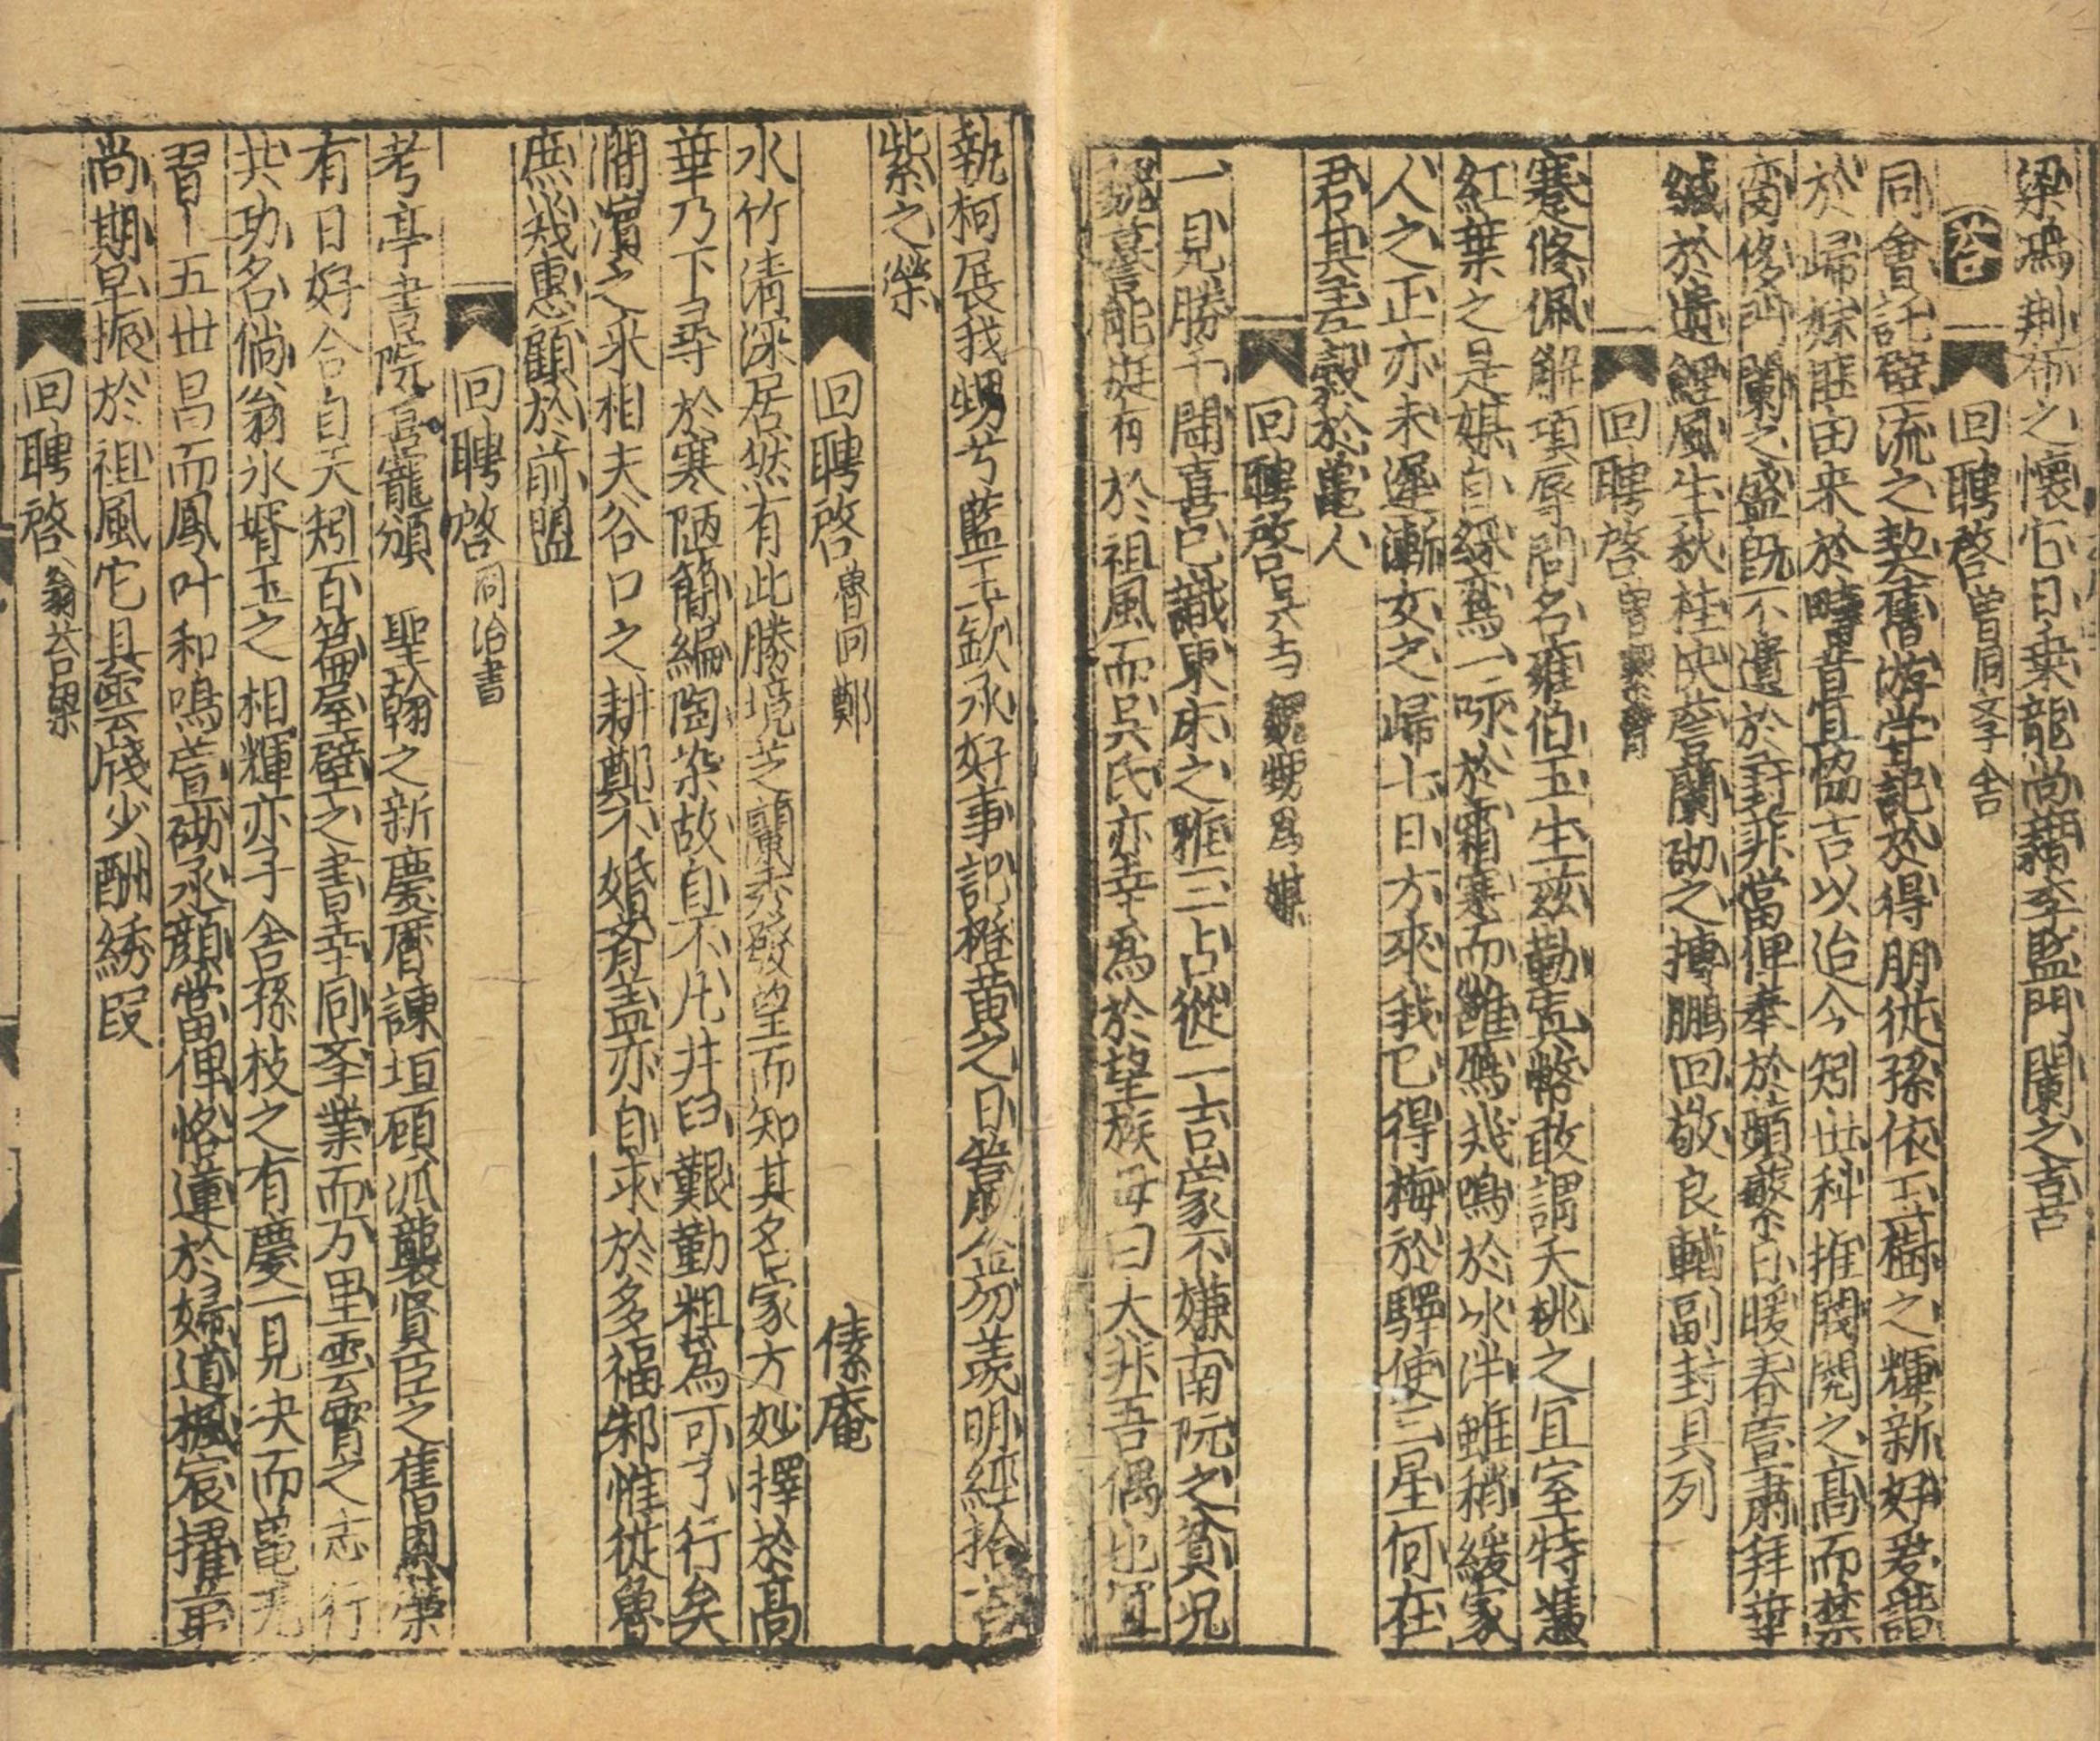 梁鴻荆布之懷它日乗龍尚藉李監門闌之喜
回聘啓 曽同文子舎
同㑹託壁流之契舊游甞記於得朋従孫依玉樹之輝新好爰諧
於歸妹匪由来於疇昔宜恊吉以迨今矧世科推閥閱之高而禁
脔侈門闌之盛既不遺於葑菲當俾奉於蘋蘩日暖春壼肅拜華
緘於遺鯉風生秋桂快詹蘭砌之搏鵬回敬良輶副封具列
回聘啓
蹇修佩觧項辱問名雍伯玉生兹勤貢幣敢謂夭桃之宜室特慿
紅葉之是媒自絲焉一咏於霜寒而雝鴈㡬鳴於氷泮雖稍緩家
人之正亦未遲漸女之歸七日方來我已得梅於驛使三星何在
君其盍穀於黽人
回聘啓 吳古 魏甥為媒
一見勝千閣喜已識東床之雅三占從二吉蒙不嫌南阮之貧况
魏甚能挺有於祖風而吳氏亦幸為於望族毋曰大非吾偶也宜
執柯展我甥兮藍玉欽承好事記橙黄之日笞羨明經拾
紫之榮
回聘啓 魯回鄭 傃庵
水竹清深居然有此勝境芝蘭秀發望而知其名家方妙擇於髙
華乃下尋於寒陋簡編陶染故自不凡井臼艱勤粗為可了行矣
澗濱之采相夫谷口之耕鄭不婚齊盖亦自求於多福邾惟從魯
庶㡬惠顧於前盟
回聘啓 同治書
考亭書院宫寵頒 聖翰之新慶曆諌垣碩派襲賢臣之舊恩榮
有日好合自天矧百篇屋壁之書幸同斈業而万里雲霄之志行
共功名倘翁氷婿玉之相輝亦子舎孫枝之有慶一見决而黽
習五世昌而鳳叶和鳴萱砌承顔當俾恪蓮於婦道楓宸擢苐
尚期早振於祖風它具雲牋少酬綉叚
回聘啓 翁荅梁